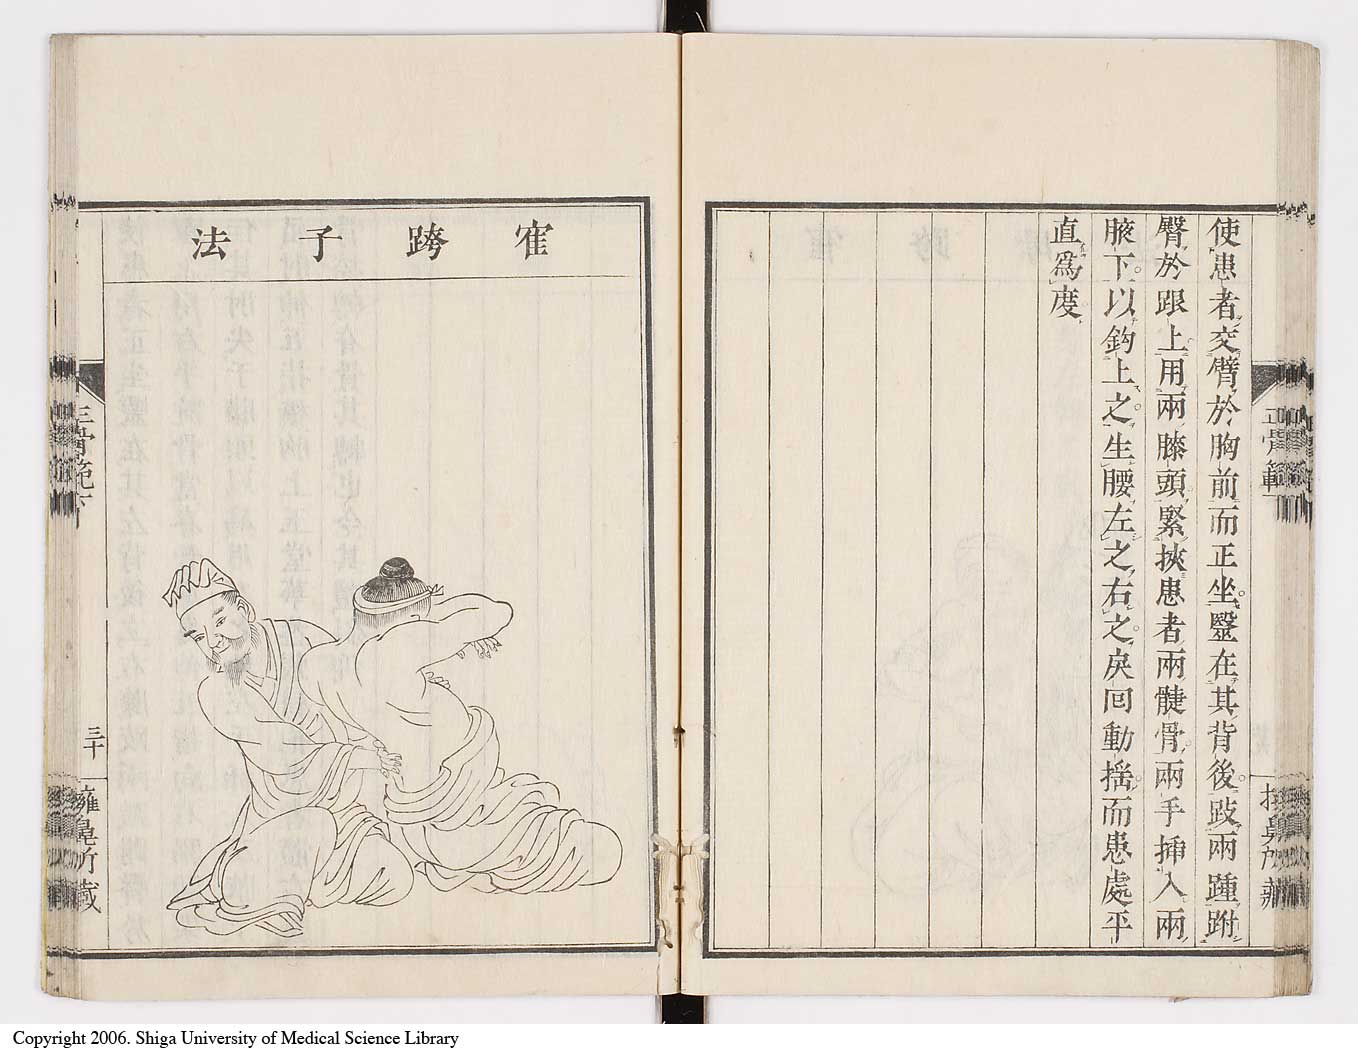 使患者交臂於胸前而正坐毉在其背後跂兩踵跗
臀於跟上用兩膝頭緊挾患者兩髀骨兩手揷入兩
腋下以鈎上之生腰左之右之戾回動搖而患處平
直爲度
正骨範
隺跨子法
骨範下
三十
雍皐所藏
Copyright 2006. Shiga University of Medical Science Library